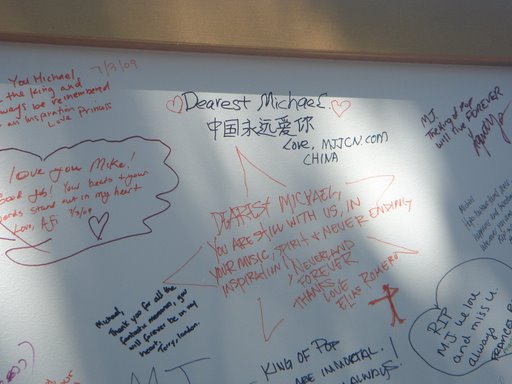 You Michael,
the King and
always be remembered
an inspiration
Love Princess
7/3/09
Dearest Michael
中国永远爱你
Love, MJJCN.COM
CHINA
MJ
The King of Pop
will live FOREVER
love you Mike!
Good Job! Your beats + your
words stand out in my heart
Love,
7/3/09
DEAREST MICHAEL,
YOU ARE STILL WITH US, IN
YOUR MUSIC, SPIRIT & NEVER ENDING
INSPIRATION!
NEVERLAND
FOREVER
THANKS,
LOVE
ELIAS ROMERO
Michael,
Thank you for all the
fantastic memories, you
will forever be in my
heart.
Terry, London.
RIP
MJ we love
and miss u
always
KING OF POP
ARE IMMORTAL!
ALWAYS.
MJ